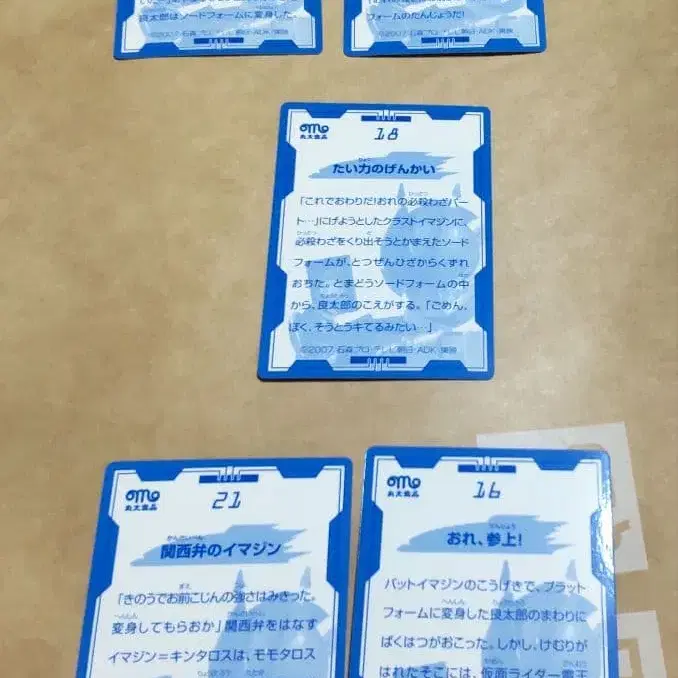 良太郎はソードフォームに変身した。
©2007 石森プロ・テレビ朝日・ADK・東映
フォームのたんじょうだ!
©2007 石森プロ・テレビ朝日・ADK・東映
丸大食品
18
たい力のげんかい
「これでおわりだ!おれの必殺わざパー
ト…」にげようとしたクラストイマジンに、
必殺わざをくり出そうとかまえたソード
フォームが、とつぜんひざからくずれ
おちた。とまどうソードフォームの中
から、良太郎のこえがする。「ごめん、
ぼく、そうとうキてるみたい…」
©2007 石森プロ・テレビ朝日・ADK・東映
丸大食品
21
関西弁のイマジン
「きのうでお前こじんの強さはみきった。
変身してもらおか」関西弁をはなす
イマジン=キンタロスは、モモタロス
丸大食品
16
おれ、参上!
バットイマジンのこうげきで、プラット
フォームに変身した良太郎のまわりに
ばくはつがおこった。しかし、けむりが
はれたそこには、仮面ライダー電王